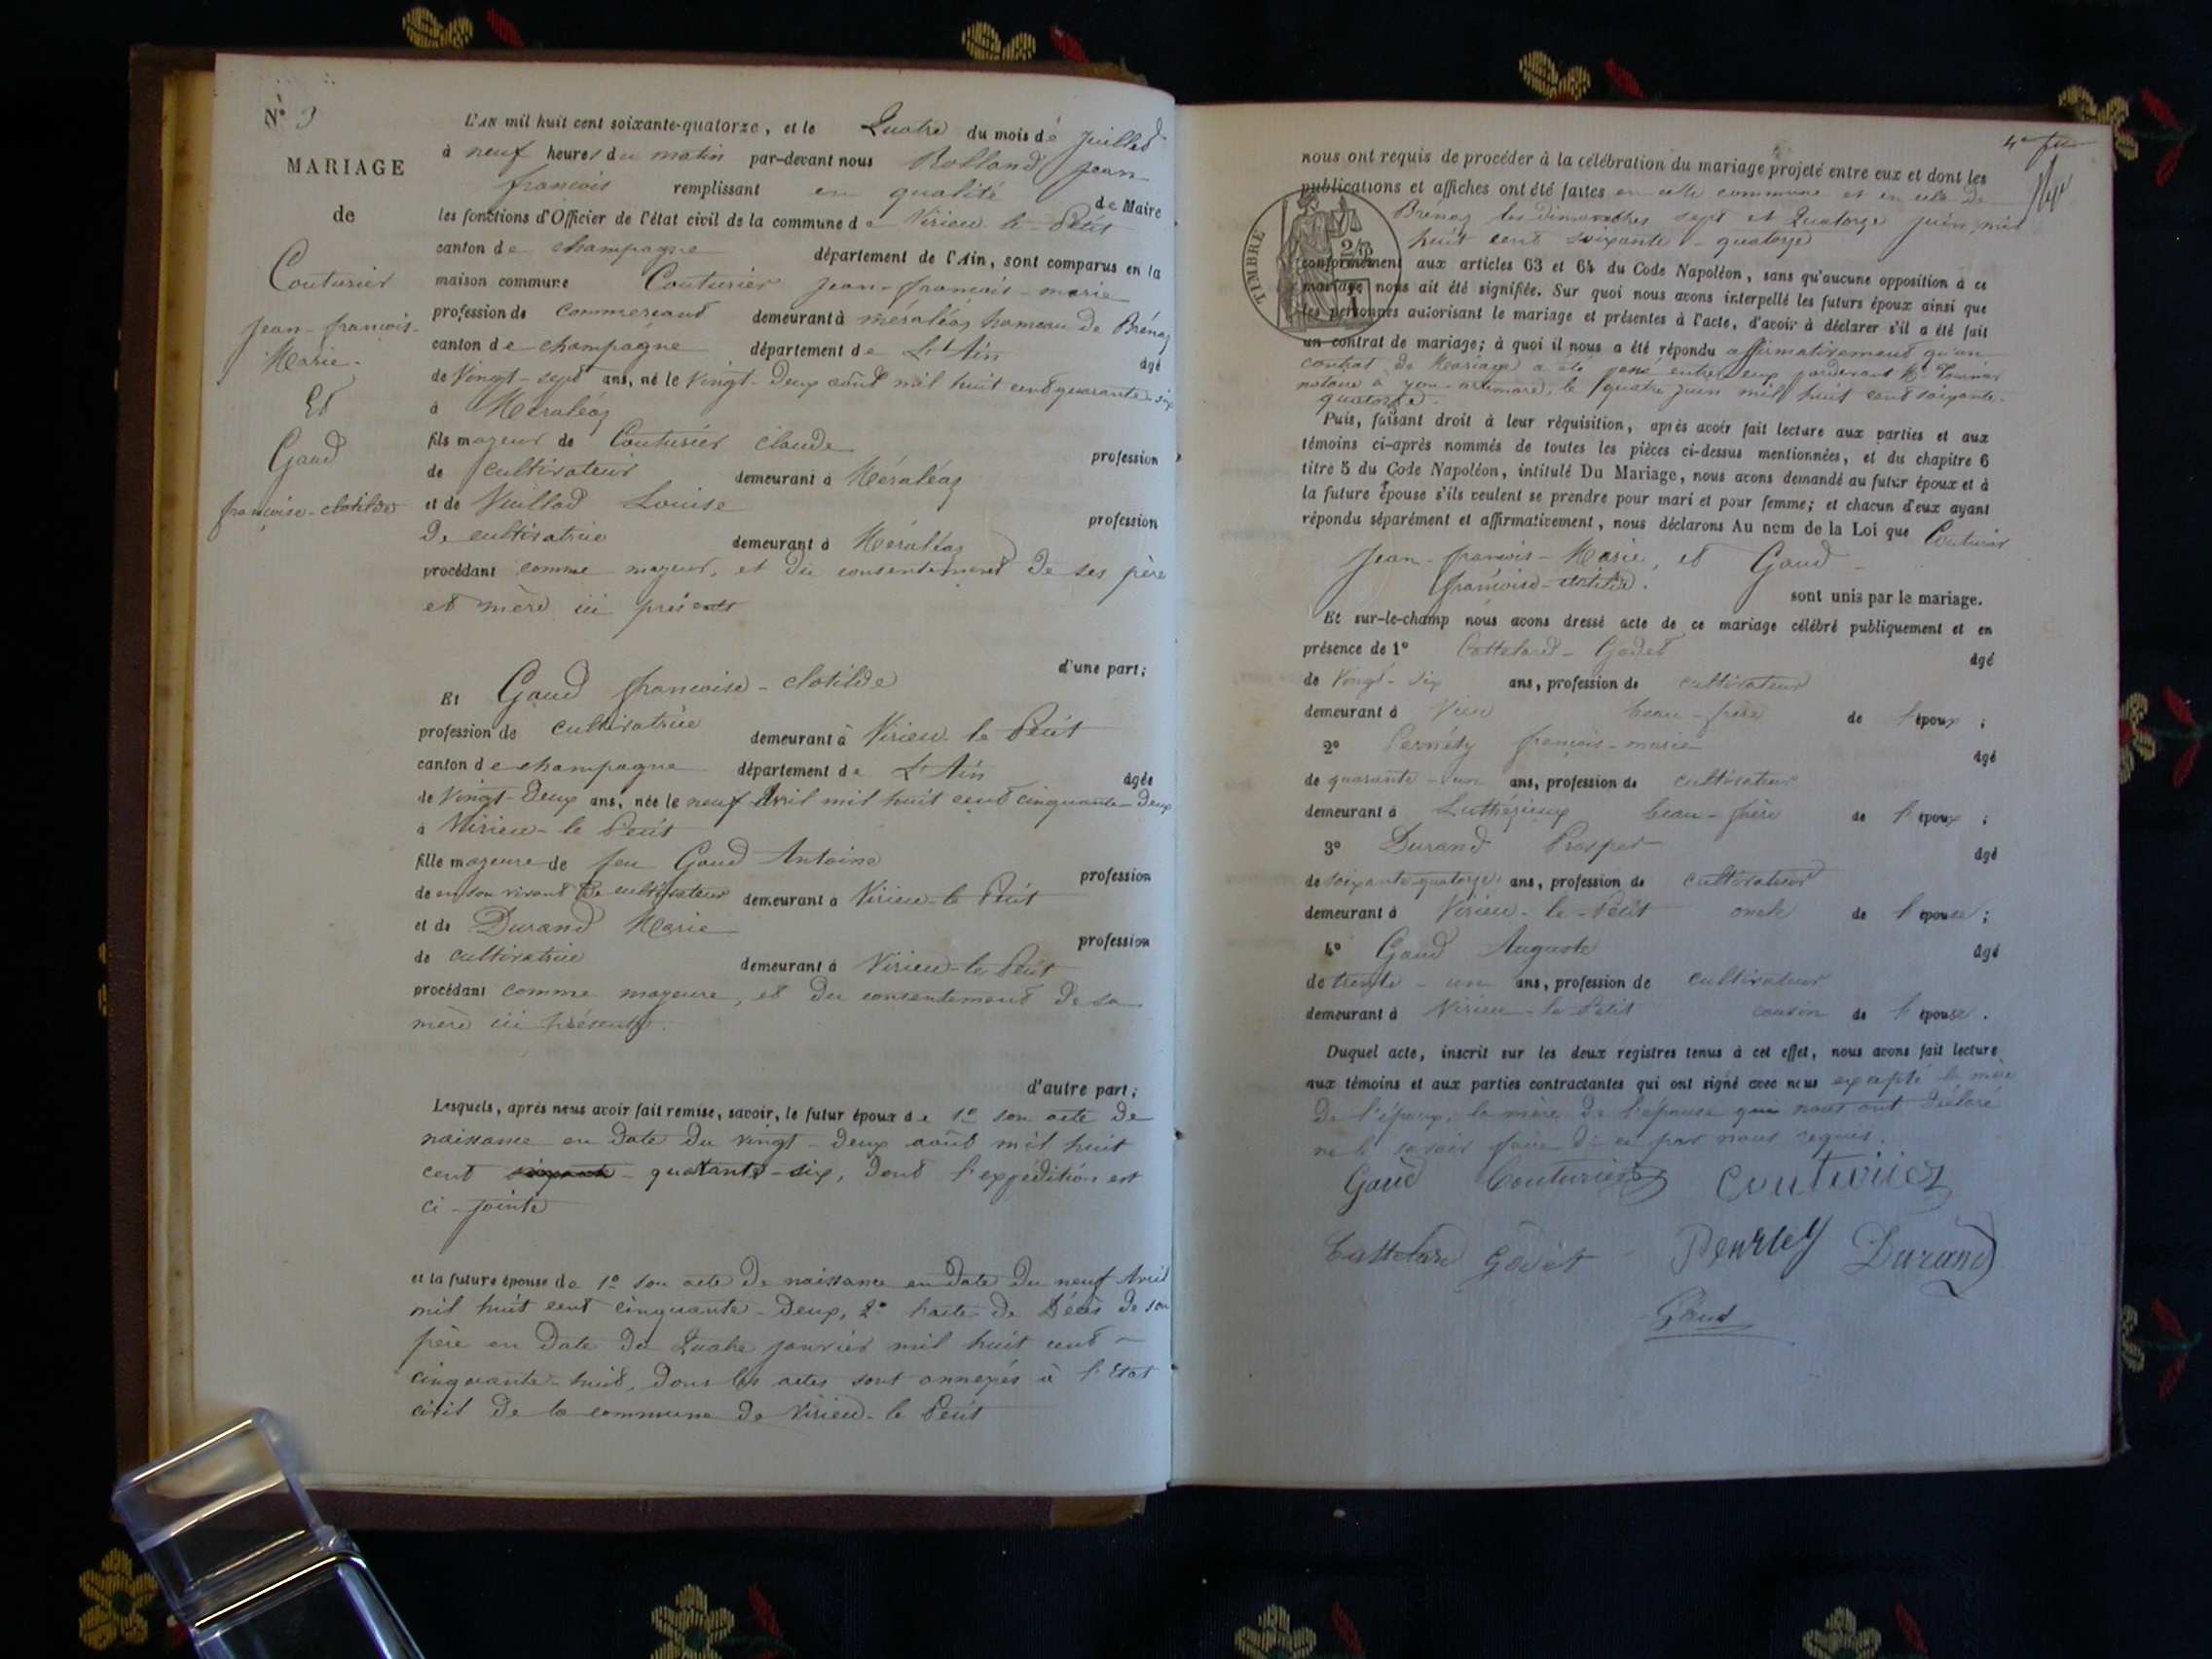 N° 3
MARIAGE
de
Couturier
Jean-francois-
Marie.
Et
Gaud
francoise-clotilde
L'AN mil huit cent soixante-quatorze, et le Quatre du mois de Juillet
à neuf heures du matin par-devant nous Rolland Jean
francois remplissant en qualité de Maire
les fonctions d'Officier de l'état civil de la commune de Virieu-le-Petit
canton de champagne département de l'Ain, sont comparus en la
maison commune Couturier Jean-francois-marie
profession de commercant demeurant à méraléaz hameau de Brénaz
canton de champagne département de L'Ain âgé
de Vingt-sept ans, né le Vingt-Deux août mil huit cent quarante-six
à Méraléaz
fils majeur de Couturier Claude profession
de cultivateur demeurant à Méraléaz
et de Vuillod Louise profession
De cultivatrice demeurant à Méraléaz
procédant comme majeur, et du consentement de ses père
et mère ici présents
d'une part;
Et Gaud francoise-clotilde
profession de cultivatrice demeurant à Virieu-le-Petit
canton de champagne département de L'Ain âgée
de Vingt-Deux ans, née le neuf Avril mil huit cent cinquante-deux
à Virieu-le Petit
fille majeure de feu Gaud Antoine profession
de en son vivant de cultivateur demeurant à Virieu-le Petit
et de Durand Marie profession
de cultivatrice demeurant à Virieu-le Petit
procédant comme majeure, et du consentement de sa
mère ici présente.
d'autre part;
Lesquels, après nous avoir fait remise, savoir, le futur époux de 1° son acte de
naissance en date du vingt-deux août mil huit
cent quarante-six, dont l'expédition est
ci-jointe
et la future épouse de 1° son acte de naissance en date du neuf Avril
mil huit cent cinquante-deux, 2° l'acte de Décès de son
père en date du Quatre janvier mil huit cent
cinquante-huit, dont les actes sont annexés à l'Etat
civil de la commune de Virieu-le Petit
nous ont requis de procéder à la célébration du mariage projeté entre eux et dont les
publications et affiches ont été faites en cette commune et en celle de
Brénaz les dimanches sept et Quatorze juin mil
huit cent soixante-quatorze
TIMBRE
conformément aux articles 63 et 64 du Code Napoléon, sans qu'aucune opposition à ce
mariage nous ait été signifiée. Sur quoi nous avons interpellé les futurs époux ainsi que
les personnes autorisant le mariage et présentes à l'acte, d'avoir à déclarer s'il a été fait
un contrat de mariage; à quoi il nous a été répondu affirmativement qu'un
contrat de Mariage a été passé entre eux pardevant
notaire à le quatre juin mil huit cent soixante-
quatorze.
Puis, faisant droit à leur réquisition, après avoir fait lecture aux parties et aux
témoins ci-après nommés de toutes les pièces ci-dessus mentionnées, et du chapitre 6
titre 5 du Code Napoléon, intitulé Du Mariage, nous avons demandé au futur époux et à
la future épouse s'ils veulent se prendre pour mari et pour femme; et chacun d'eux ayant
répondu séparément et affirmativement, nous déclarons Au nom de la Loi que Couturier
Jean-francois-Marie, et Gaud
francoise-clotilde.
sont unis par le mariage.
Et sur-le-champ nous avons dressé acte de ce mariage célébré publiquement et en
présence de 1° Cattelard-Godet âgé
de Vingt-six ans, profession de cultivateur
demeurant à Vieu beau-frère de l'époux;
2° Pernéty francois-marie âgé
de quarante-un ans, profession de cultivateur
demeurant à Luthézieux beau-frère de l'époux;
3° Durand Prosper âgé
de soixante-quatorze ans, profession de cultivateur
demeurant à Virieu-le-Petit oncle de l'épouse;
4° Gaud Auguste âgé
de trente-un ans, profession de cultivateur
demeurant à Virieu-le Petit cousin de l'épouse.
Duquel acte, inscrit sur les deux registres tenus à cet effet, nous avons fait lecture
aux témoins et aux parties contractantes qui ont signé avec nous excepté la mère
de l'époux, la mère de l'épouse qui nous ont déclaré
ne le savoir faire de ce par nous requis.
Gaud Couturier Couturier
Cattelard Godet Durand
Gaud